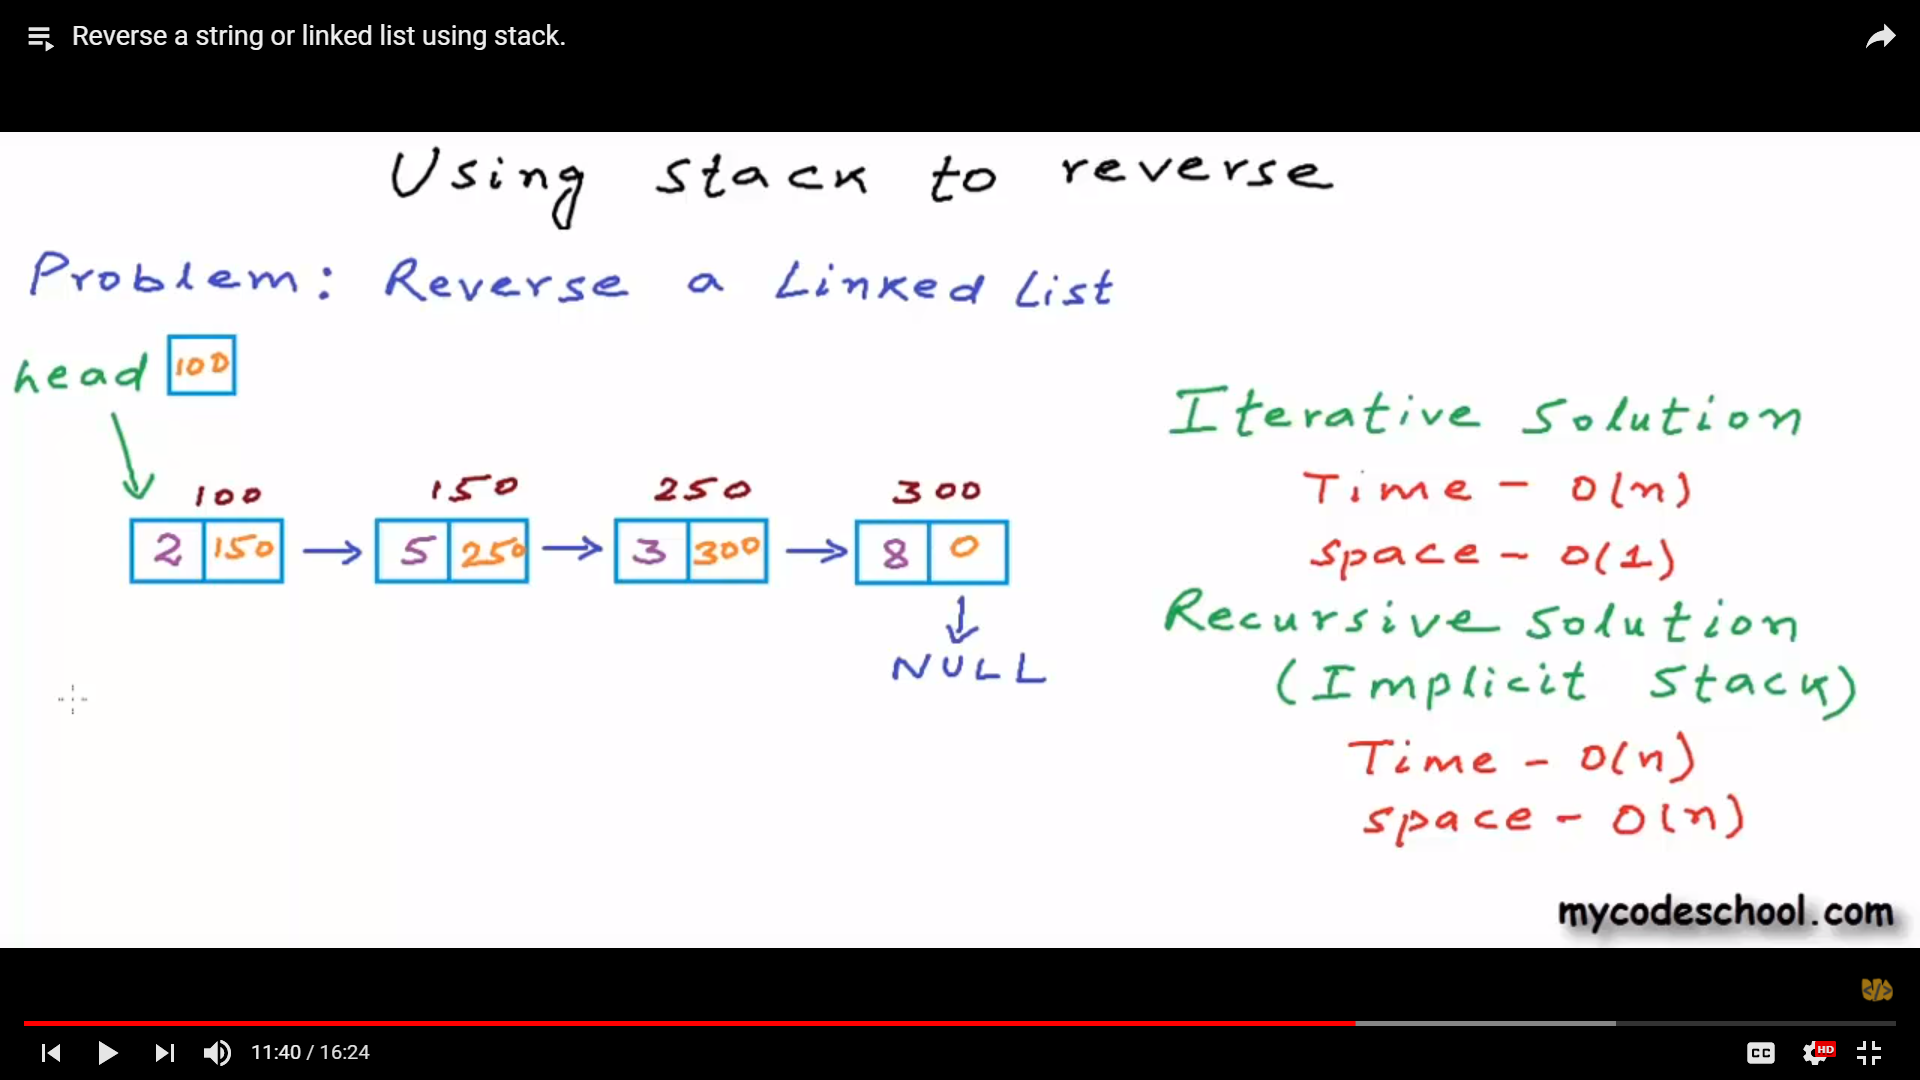 Reverse a string or linked list using stack.
Using stack to reverse
Problem: Reverse a Linked List
head 100
100 150 250 300
2 150 5 250 3 300 8 0
NULL
Iterative Solution
Time - O(n)
Space - O(1)
Recursive Solution
(Implicit Stack)
Time - O(n)
Space - O(n)
mycodeschool.com
</>
11:40 / 16:24
CC
HD